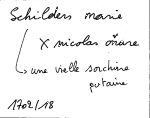 Schilders marie
X nicolas önare
une vielle sorchiere
putaine
1702/18